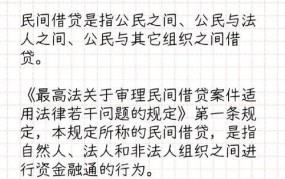 民间借贷是指公民之间、公民与法
人之间、公民与其它组织之间借
贷。
《最高法关于审理民间借贷案件适
用法律若干问题的规定》第一条规
定，本规定所称的民间借贷，是指
自然人、法人和非法人组织之间进
行资金融通的行为。